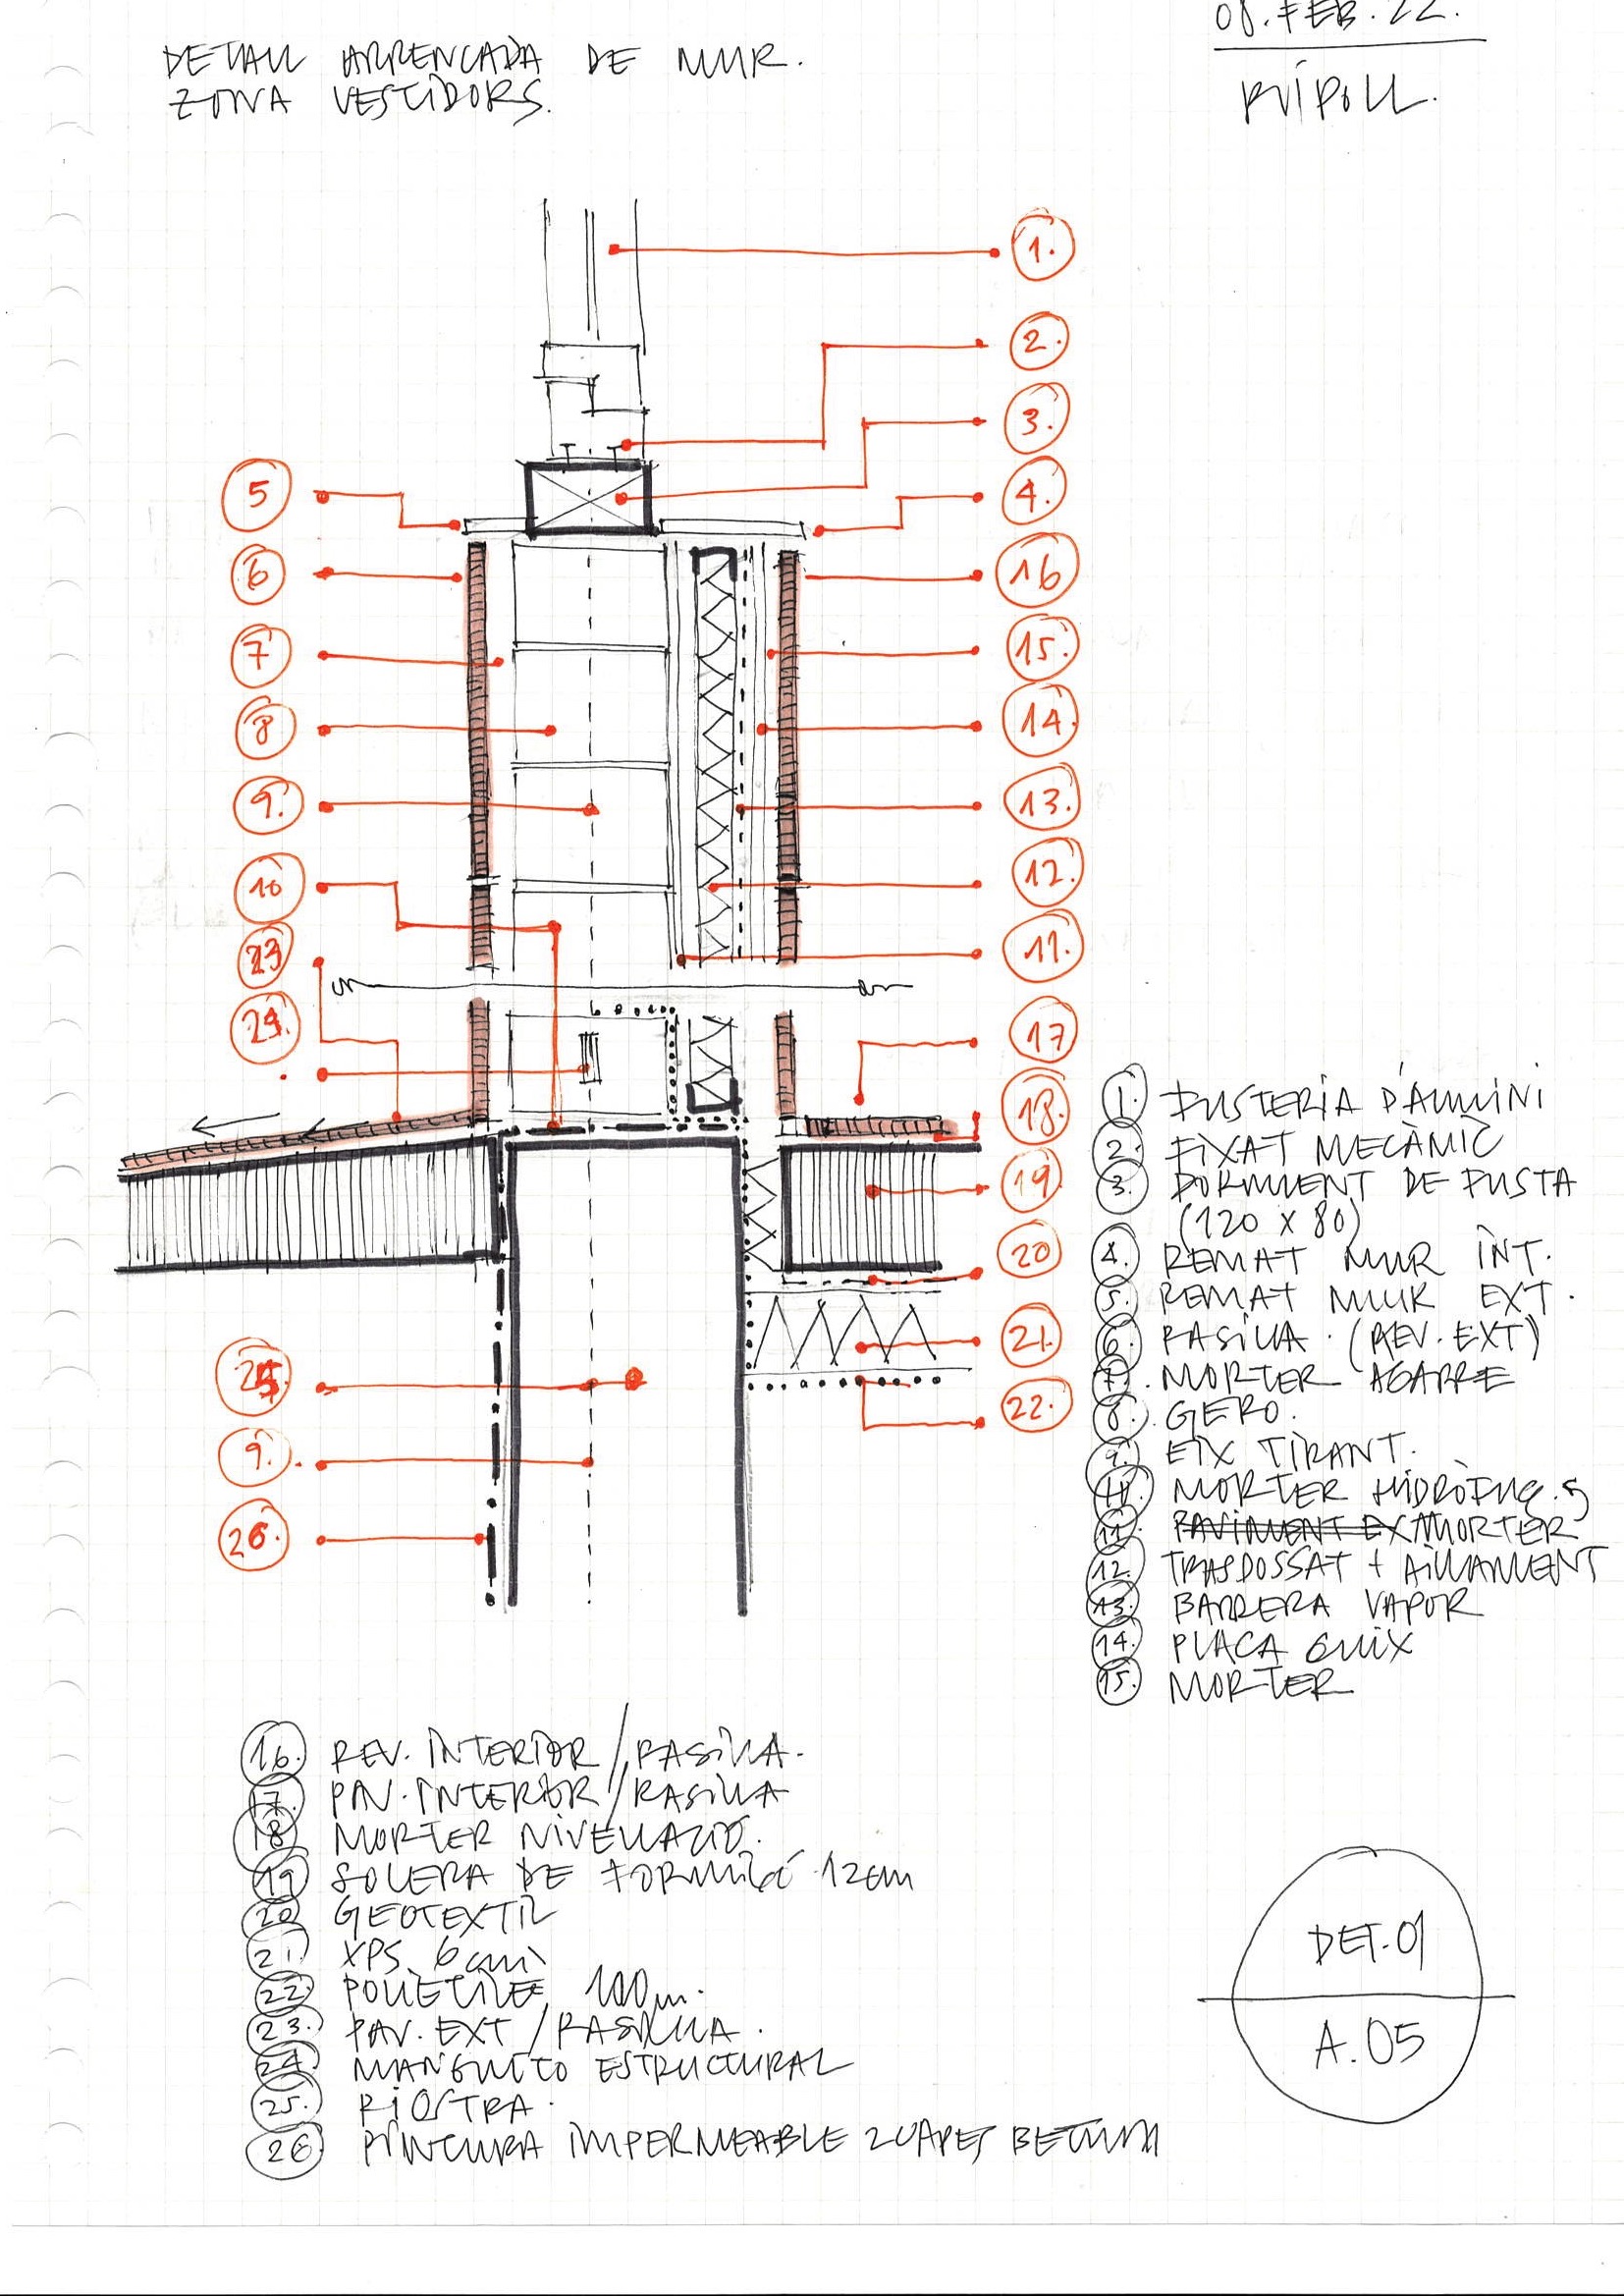 08.FEB.22.
RIPOLL.
DETALL ARRENCADA DE MUR.
ZONA VESTIDORS.
1.
2.
3.
4.
5
6
7
8
9.
10
23
24.
16
15.
14.
13.
12.
11.
17
18.
19
20
21.
22.
25.
9.
26.
1. FUSTERIA D'ALUMINI
2. FIXAT MECÀNIC
3. DORMENT DE FUSTA
(120 x 80)
4. REMAT MUR INT.
5. REMAT MUR EXT.
6. RASILLA. (REV. EXT)
7. MORTER AGARRE
8. GERO.
9. EIX TIRANT.
MORTER HIDRÒFUG.
11. PAVIMENT EX MORTER
12. TRASDOSSAT + AÏLLAMENT
13. BARRERA VAPOR
14. PLACA GUIX
15. MORTER
16. REV. INTERIOR / RASILLA.
17. PAV. INTERIOR / RASILLA
18 MORTER NIVELLACIÓ.
19 SOLERA DE FORMIGÓ 12cm
20 GEOTEXTIL
21. XPS. 6cm
22. POLIETILÈ
23. PAV. EXT / RASILLA.
24. MANGUITO ESTRUCTURAL
25. RIOSTRA.
26 PINTURA IMPERMEABLE 2 CAPES BETUM
DET.01
A.05